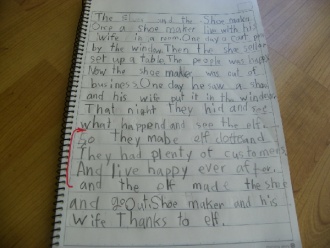 The and the Shoe maker
Once a shoe maker live with his
wife in a room. One day a cart
by the window. Then the shoe
set up a table. The people was happy
Now the shoe maker was out of
business. One day he saw a shoe
and his wife put it in the window
That night they hid and see
what happend and see the elf
So they made elf and
They had plenty of customees
And live happy ever after
and the elf made the shoe
and Shoe maker and his
wife Thanks to elf.